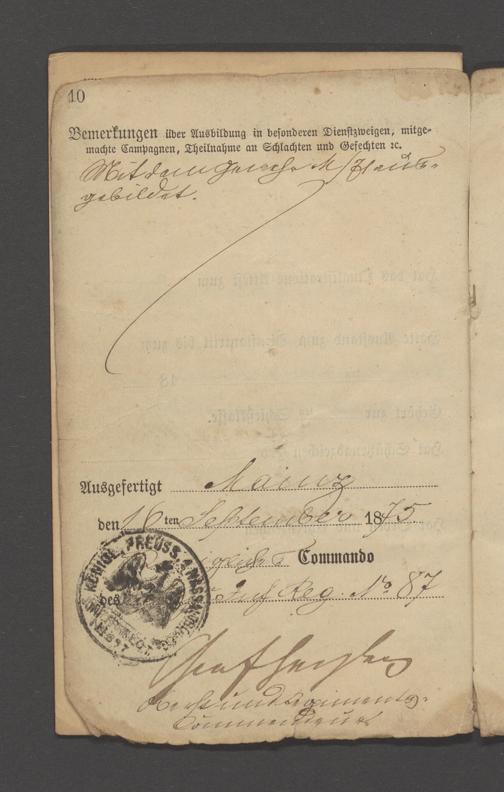 10
Bemerkungen über Ausbildung in besonderen Dienstzweigen, mitge-
machte Campagnen, Theilnahme an Schlachten und Gefechten ꝛc.
Mit dem Gewehr M/71 aus-
gebildet.
Ausgefertigt Mainz
den 16ten September 1875.
Commando
des Inf. Reg. No 87
KÖNIGL. PREUSS. NASSAUISCHES
Oberst und Regiments-
Commandeur